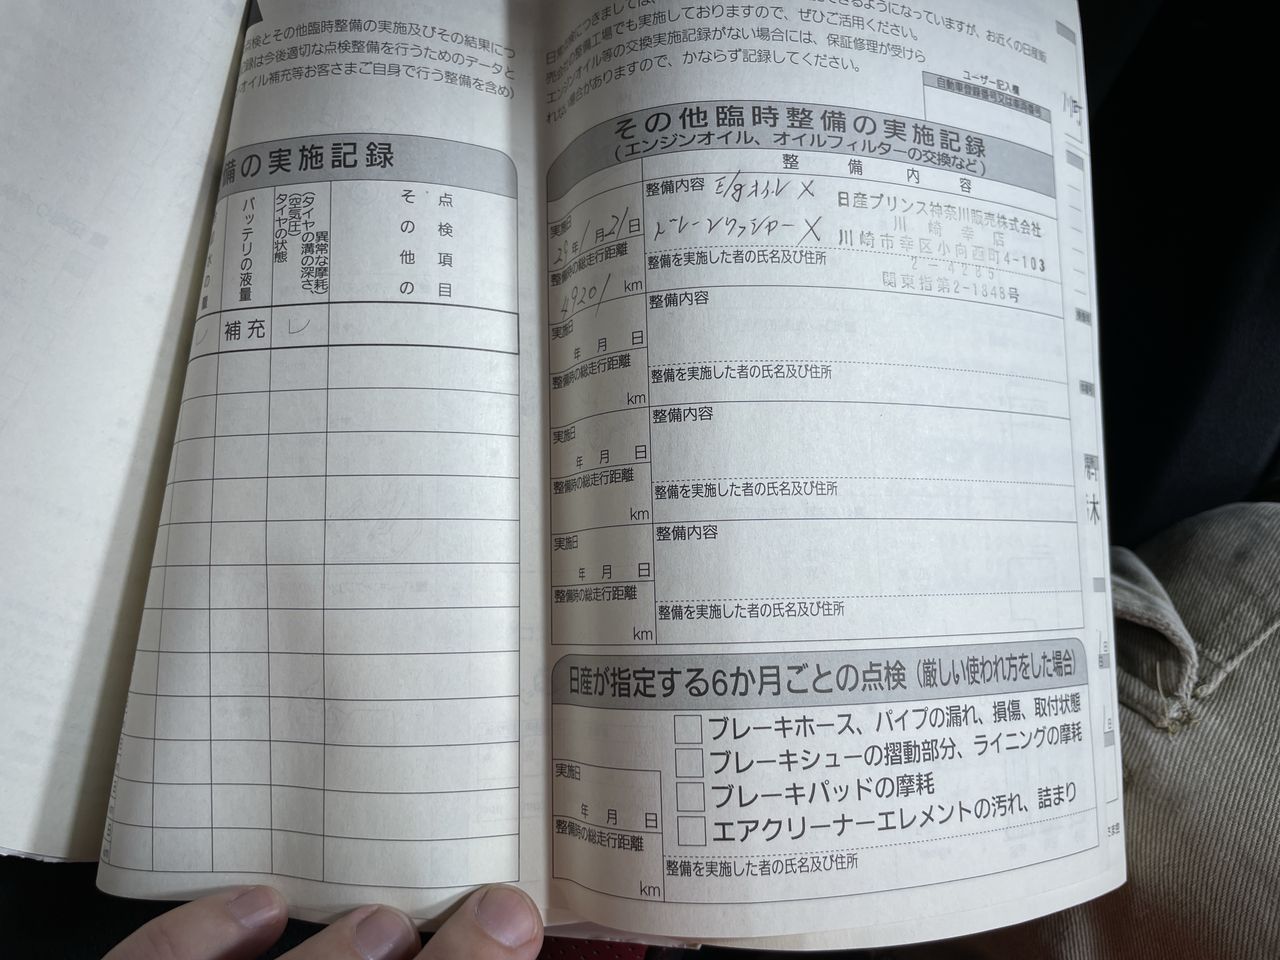 点検とその他臨時整備の実施及びその結果につ
録は今後適切な点検整備を行うためのデータと
オイル補充等お客さまご自身で行う整備を含め)
備の実施記録
バッテリの液量
タイヤの状態
(空気圧
タイヤの溝の深さ、
異常な摩耗)
その他の
点検項目
補充
きるようになっていますが、お近くの日産販
の整備工場でも実施しておりますので、ぜひご活用ください。
エンジンオイル等の交換実施記録がない場合には、保証修理が受けら
れない場合がありますので、かならず記録してください。
ユーザー記入欄
自動車登録番号又は車両番号
その他臨時整備の実施記録
(エンジンオイル、オイルフィルターの交換など)
整備内容
実施日
29年1月21日
整備時の総走行距離
49201 km
整備内容
整備を実施した者の氏名及び住所
日産プリンス神奈川販売株式会社
川崎幸店
川崎市幸区小向西町4-103
関東指第2-1848号
実施日
年 月 日
整備時の総走行距離
km
整備内容
整備を実施した者の氏名及び住所
実施日
年 月 日
整備時の総走行距離
km
整備内容
整備を実施した者の氏名及び住所
実施日
年 月 日
整備時の総走行距離
km
整備内容
整備を実施した者の氏名及び住所
日産が指定する6か月ごとの点検(厳しい使われ方をした場合)
ブレーキホース、パイプの漏れ、損傷、取付状態
ブレーキシューの摺動部分、ライニングの摩耗
ブレーキパッドの摩耗
エアクリーナーエレメントの汚れ、詰まり
実施日
年 月 日
整備時の総走行距離
km
整備を実施した者の氏名及び住所